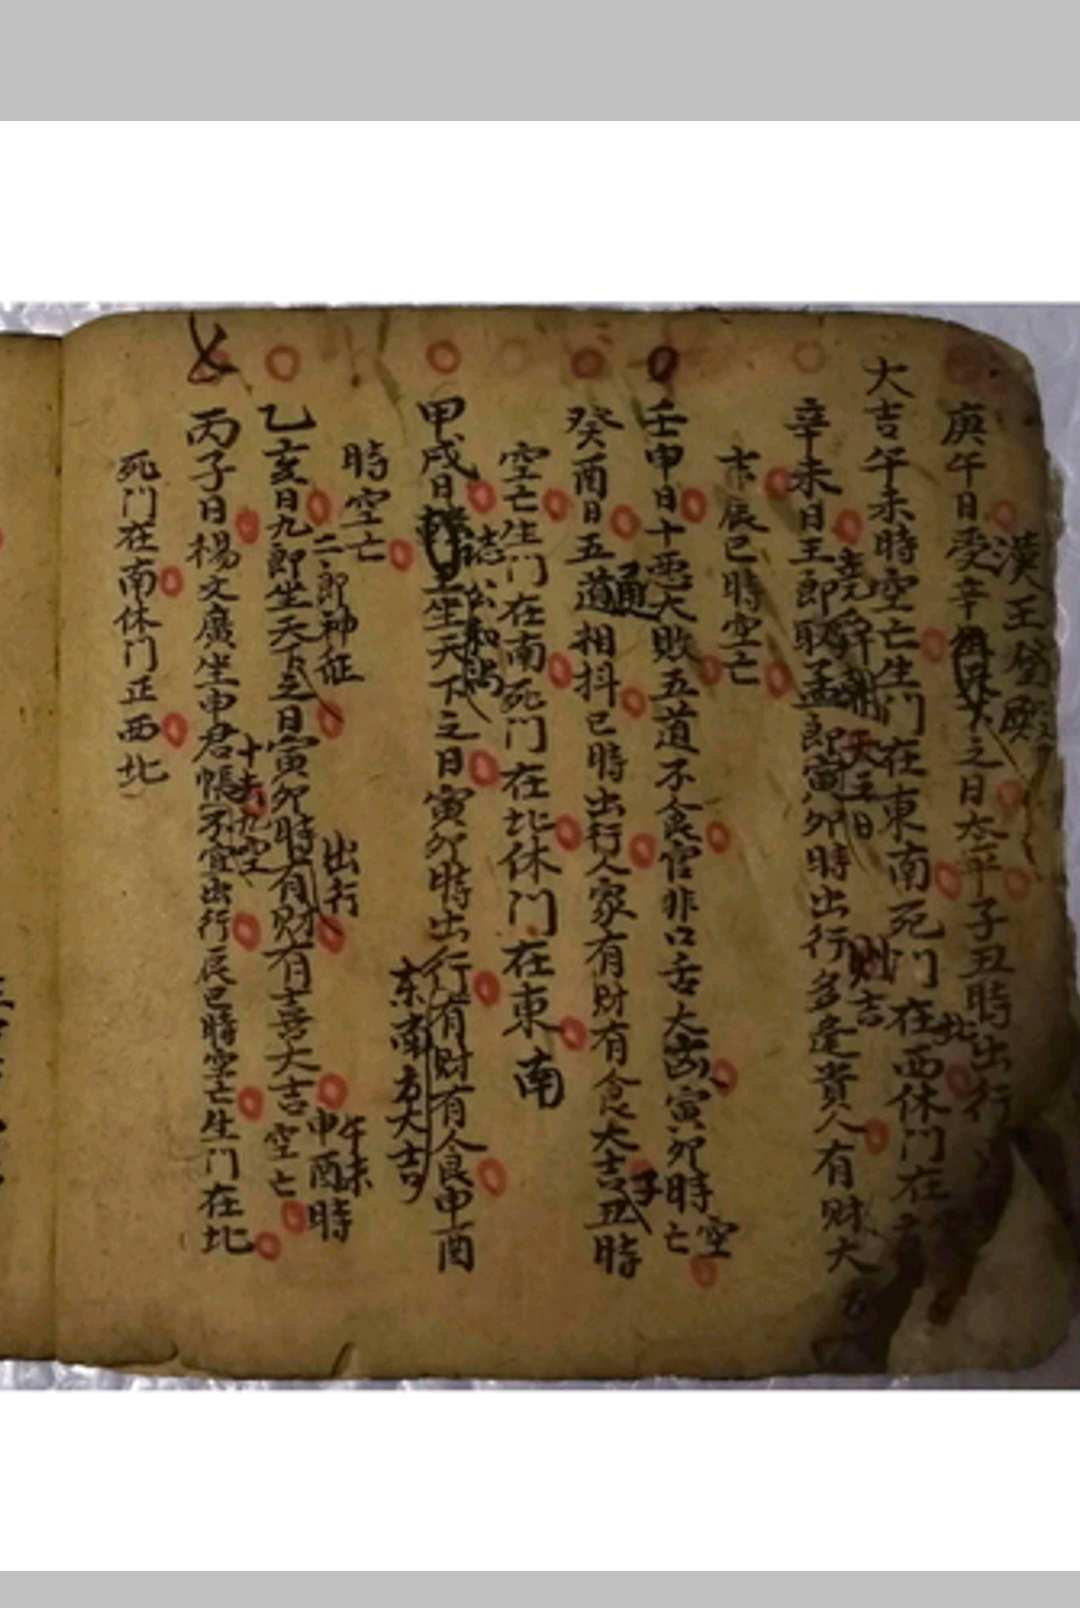 漢王登殿
庚午日受辛之日太平子丑時出行
大吉午未時空亡生門在東南死門在西休門在
北
堯舜朝天之日
財吉
辛未日王郎眼孟郎寅卯時出行多逢貴人有財大
辰巳時空亡
壬申日十惡大敗五道不食官非口舌大凶寅卯時空亡
癸酉日五道通相抖巳時出行人家有財有食大吉子丑時
空亡生門在南死門在北休門在東南
誌公和尚
甲戌日王坐天下之日寅卯時出行有財有人良申酉
东南方大吉
時空亡
二郎神征
出行
午未
申酉時
乙亥日九郎坐天下之日寅卯時有財有喜大吉空亡
十去九空
丙子日楊文廣坐中君帳不宜出行辰巳時空亡生門在北
死門在南休門正西北